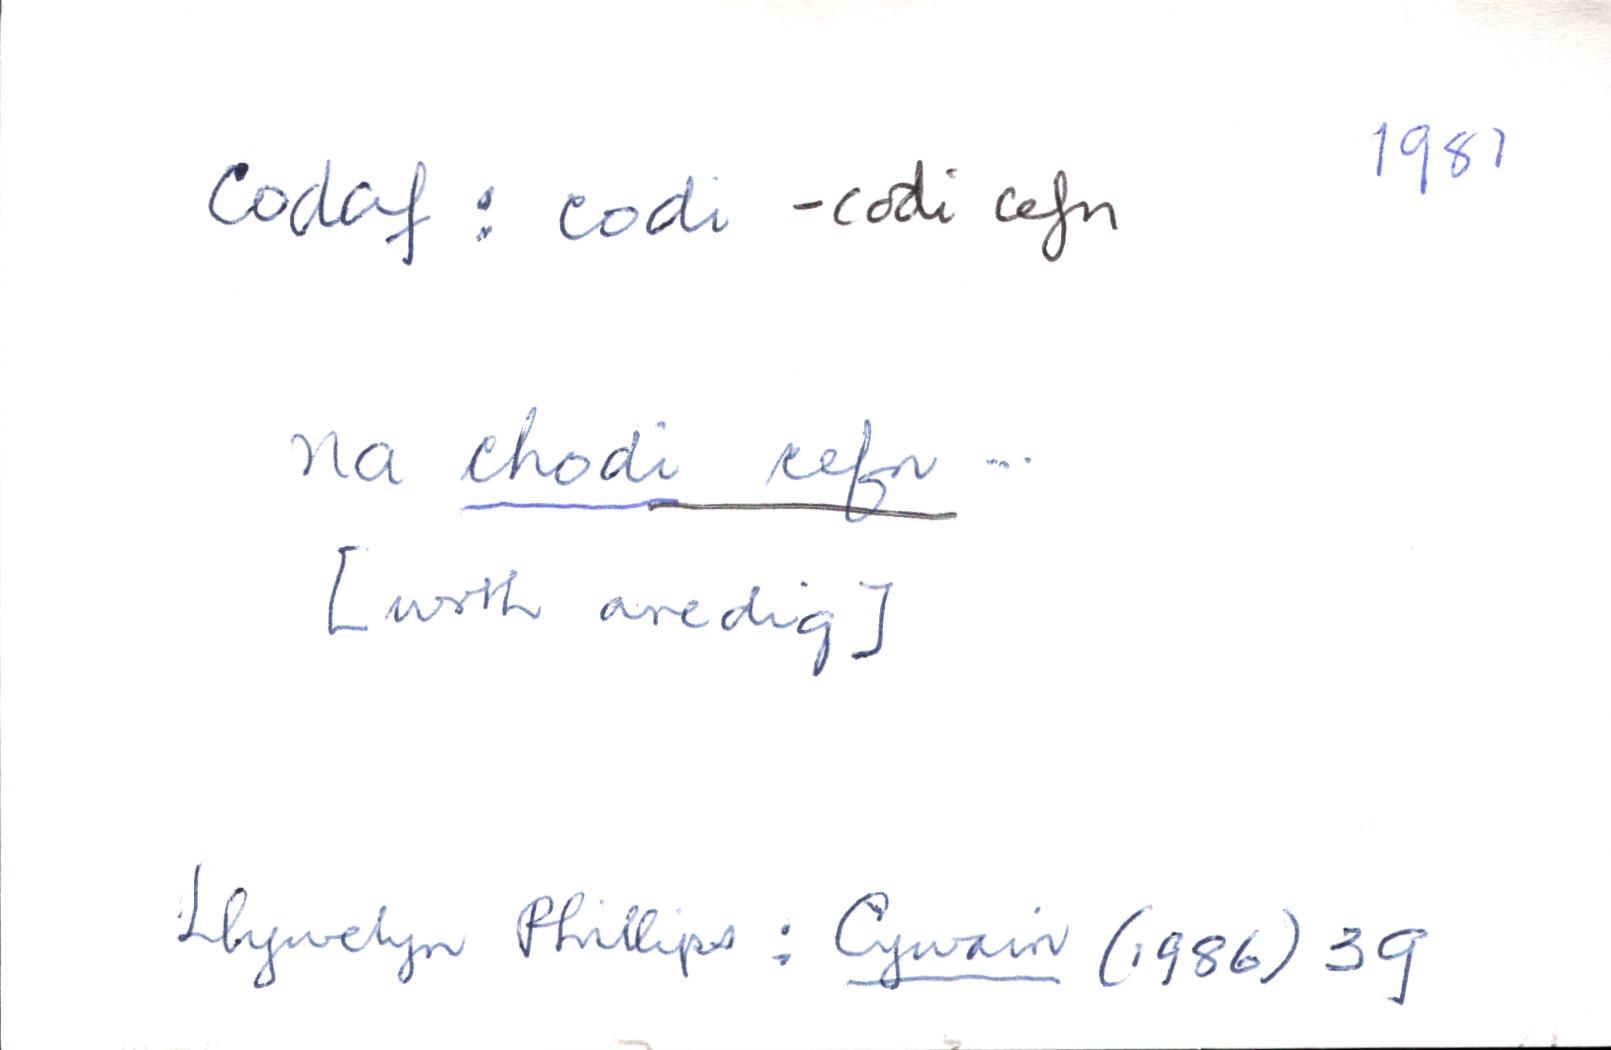 Codaf : codi - codi cefn
1987
na chodi cefn ...
[wrth aredig]
Llywelyn Phillips : Cywain (1986) 39